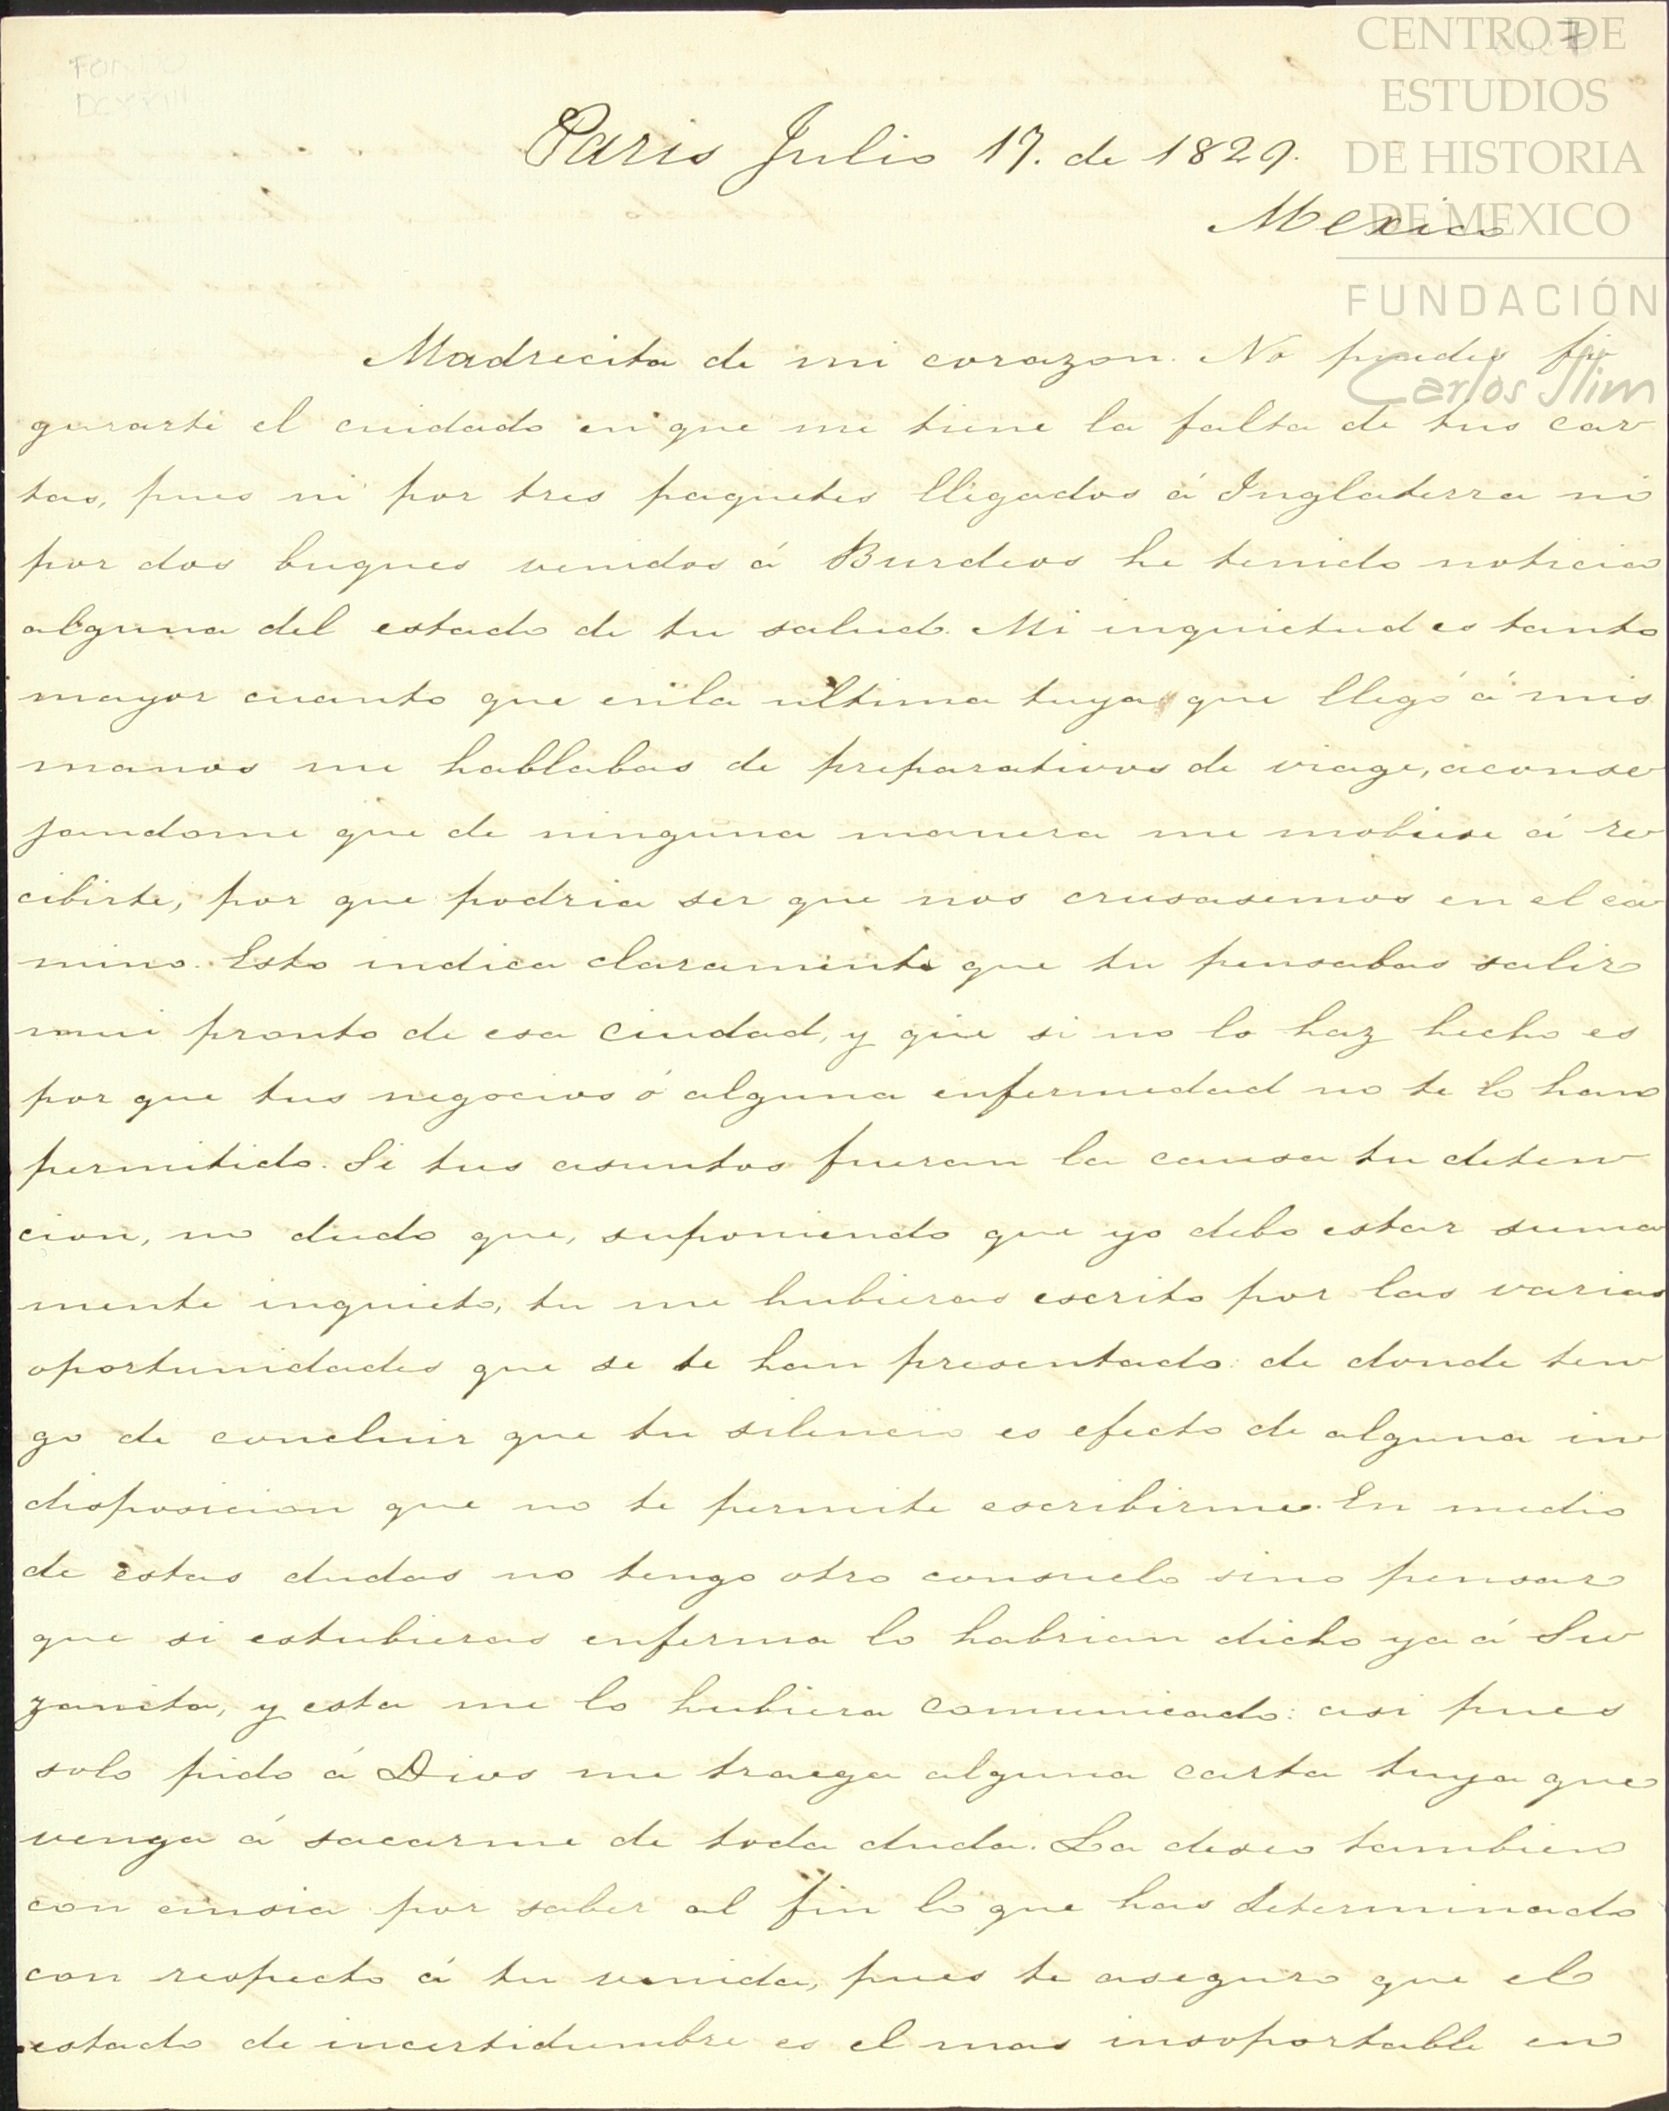 FONDO
DCXXIII
7
CENTRO DE
ESTUDIOS
DE HISTORIA
DE MEXICO
FUNDACIÓN
Carlos Slim
Paris Julio 17. de 1829.
Mexico
Madrecita de mi corazon. No puedes fi
gurarte el cuidado en que me tiene la falta de tus car
tas, pues ni por tres paquetes llegados á Inglaterra ni
por dos buques venidos á Burdeos he tenido noticia
alguna del estado de tu salud. Mi inquietud es tanto
mayor cuanto que en la ultima tuya que llegó á mis
manos me hablabas de preparativos de viage, aconse
jandome que de ninguna manera me mobiese á re
cibirte, por que podria ser que nos crusasemos en el ca
mino. Esto indica claramente que tu pensabas salir
mui pronto de esa Ciudad, y que si no lo haz hecho es
por que tus negocios ó alguna enfermedad no te lo han
permitido. Si tus asuntos fueran la causa tu deten
cion, no dudo que, suponiendo que yo debo estar suma
mente inquieto, tu me hubieras escrito por las varias
oportunidades que se te han presentado: de donde ten
go de concluir que tu silencio es efecto de alguna in
disposicion que no te permite escribirme. En medio
de estas dudas no tengo otro consuelo sino pensar
que si estubieras enferma lo habrian dicho ya á Su
zanita, y esta me lo hubiera comunicado: asi pues
solo pido á Dios me traega alguna carta tuya que
venga á sacarme de toda duda. La deseo tambien
con ansia por saber al fin lo que has determinado
con respecto á tu venida, pues te aseguro que el
estado de incertidumbre es el mas insoportable en